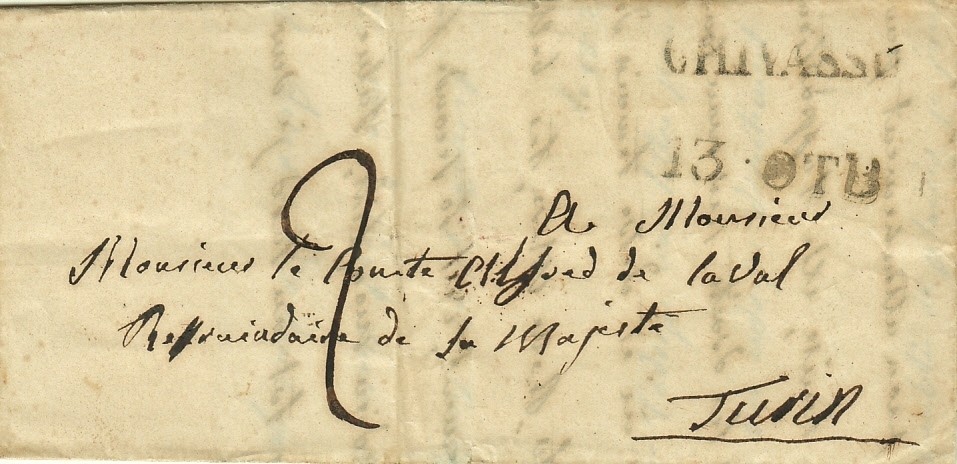 CHIVASSO
13 OTB
2
A Monsieur
Monsieur le Comte Alfred de Laval
de sa Majesté
Turin